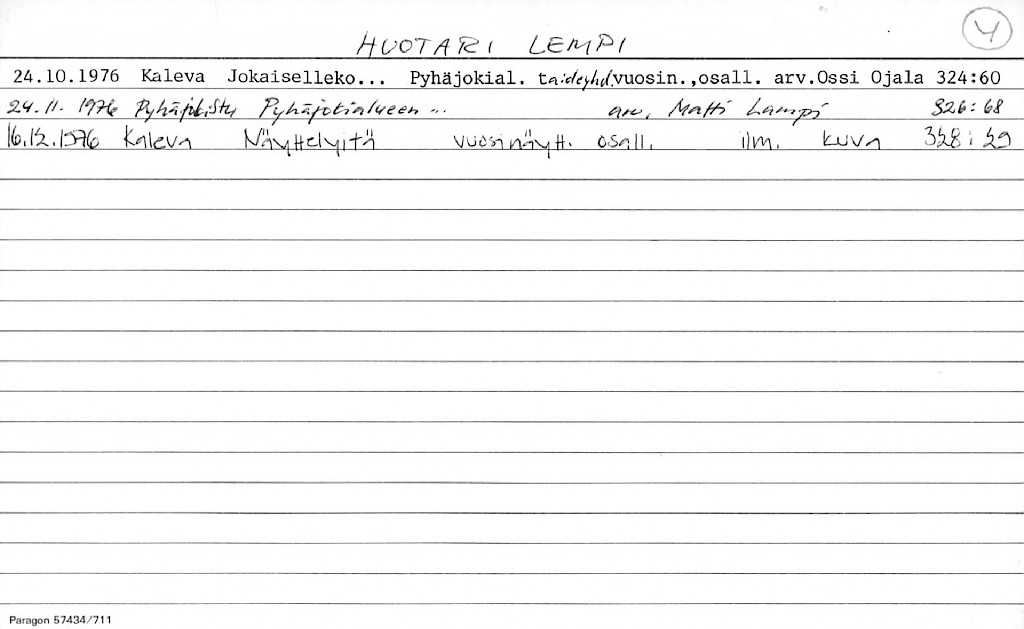 HUOTARI LEMPI Y
24.10.1976 Kaleva Jokaiselleko... Pyhäjokial. taideyhd. vuosin.,osall. arv.Ossi Ojala 324:60
24.11. 1976 Pyhäjokiseutu Pyhäjokialueen ... arv. Matti Lampi 326:68
16.12.1976 Kaleva Näyttelyitä vuosinäytt. osall. ilm. kuva 328:29
Paragon 57434/711